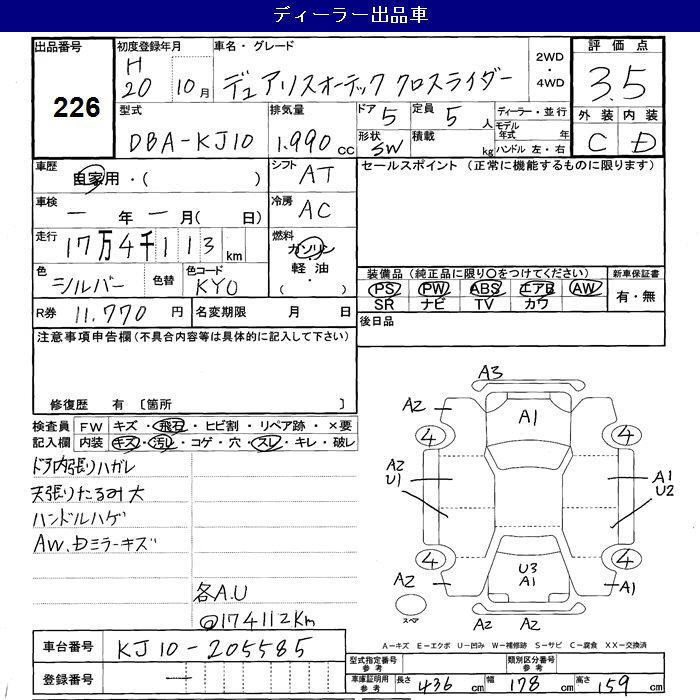 ディーラー出品車
出品番号
226
初度登録年月
H
20 10月
車名・グレード
デュアリスオーテック クロスライダー
2WD
・
4WD
評価点
3.5
外装 内装
C D
型式
DBA-KJ10
排気量
1.990 cc
ドア
5
定員
5 人
形状
SW
積載
kg
ディーラー・並行
モデル
年式 年
ハンドル 左・右
車歴
自家用・( )
シフト
AT
セールスポイント (正常に機能するものに限ります)
車検
ー 年 ー 月( 日)
冷房
AC
走行
17万4千113 km
燃料
ガソリン
軽油
( ・ )
色
シルバー
色替
色コード
KY0
装備品 (純正品に限り○をつけてください)
PS PW ABS エアB AW
SR ナビ TV カワ
新車保証書
有・無
R券 11.770 円
名変期限 月 日
後日品
注意事項申告欄 (不具合内容等は具体的に記入して下さい)
修復歴 有 [箇所 ]
検査員
記入欄
FW キズ・飛石・ヒビ割・リペア跡・×要
内装 キズ・汚レ・コゲ・穴・スレ・キレ・破レ
ドア内張りハガレ
天張りたるみ大
ハンドルハゲ
AW、Dミラーキズ
各A.U
@174112Km
A3
A2
A1
4
4
A2
U1
A1
U2
4
4
A2
U3
A1
A1
スペア
A2 A2
車台番号 KJ10-205585
登録番号 ー
A-キズ E-エクボ U-凹み W-補修跡 S-サビ C-腐食 XX-交換済
型式指定番号
参考
類別区分番号
参考
車庫証明用
参考
長さ 436 cm 幅 178 cm 高さ 159 cm